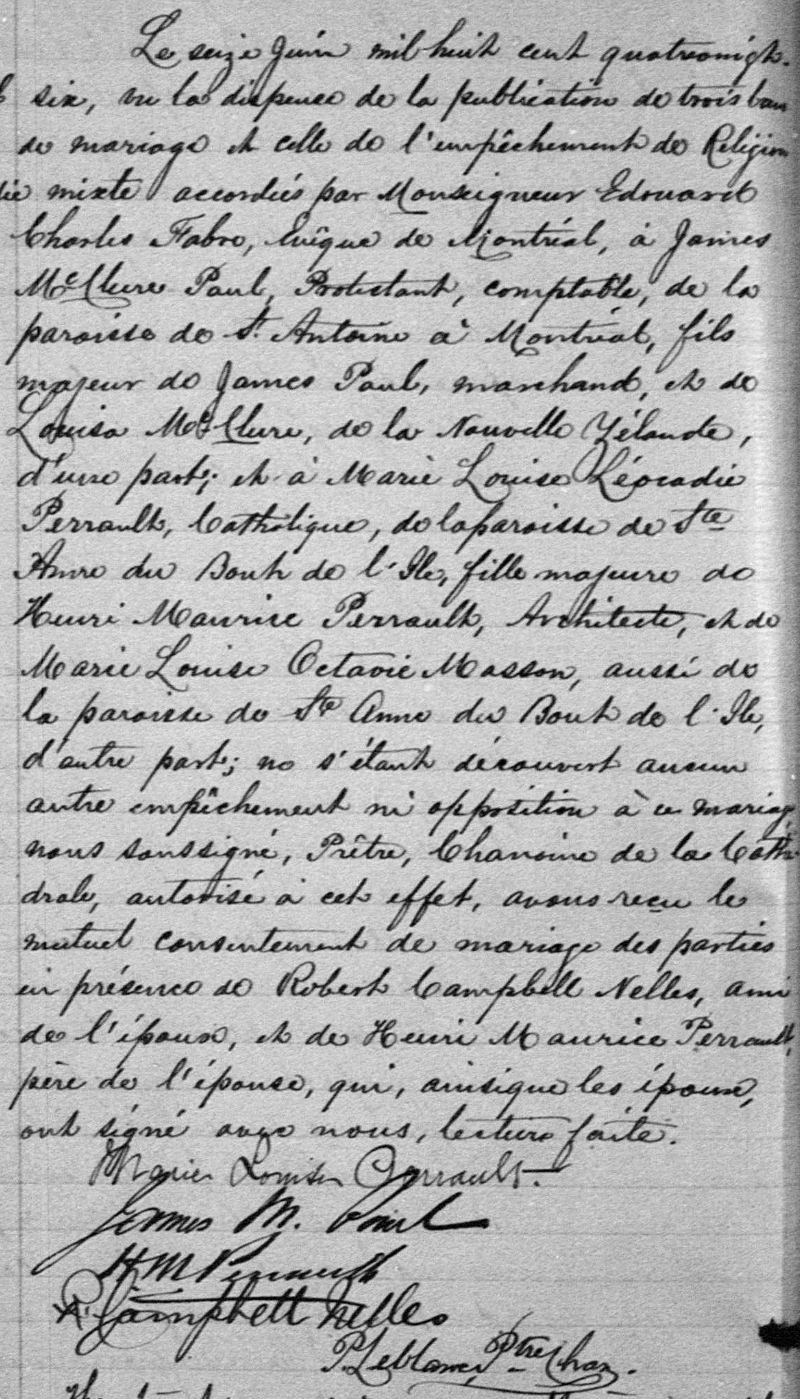 Le seize Juin mil huit cent quatrevingt-
six, vu la dispense de la publication de trois ban
de mariage et celle de l'empêchement de Religion
mixte accordées par Monseigneur Edouard
Charles Fabre, Evêque de Montréal, à James
McClure Paul, Protestant, comptable, de la
paroisse de St. Antoine à Montréal, fils
majeur de James Paul, marchand, et de
Louisa McClure, de la Nouvelle Zélande,
d'une part; et à Marie Louise Léocadie
Perrault, Catholique, de la paroisse de Ste
Anne du Bout de l'Ile, fille majeure de
Henri Maurice Perrault, Architecte, et de
Marie Louise Octavie Masson, aussi de
la paroisse de Ste Anne du Bout de l'Ile,
d'autre part; ne s'étant découvert aucun
autre empêchement ni opposition à ce mariage,
nous soussigné, Prêtre, Chanoine de la Cathé
drale, autorisé à cet effet, avons reçu le
mutuel consentement de mariage des parties
en présence de Robert Campbell Nelles, ami
de l'époux, et de Henri Maurice Perrault,
père de l'épouse, qui, ainsi que les époux,
ont signé avec nous, lecture faite.
Marie Louise Perrault.
James M. Paul
H M Perrault
R. Campbell Nelles
P. Leblanc, Ptre Chan.